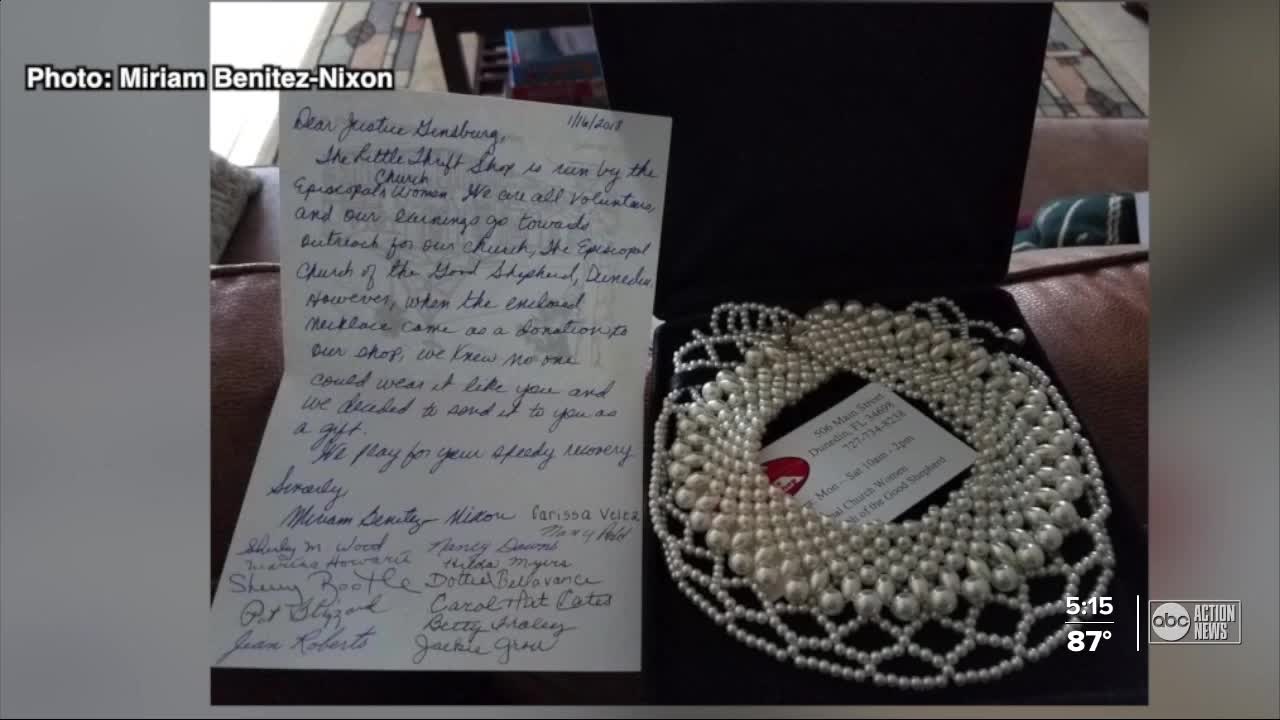 Photo: Miriam Benitez-Nixon
1/16/2018
Dear Justice Ginsburg,
The Little Thrift Shop is run by the
Church
Episcopal Women. We are all Volunteers,
and our earnings go towards
outreach for our church, The Episcopal
Church of the Good Shepherd, Dunedin.
However, when the enclosed
necklace came as a donation to
our shop, we knew no one
could wear it like you and
we decided to send it to you as
a gift.
We pray for your speedy recovery
Sincerely,
Miriam Benitez-Nixon Carissa Velez
Nancy
Shirley M. Wood Nancy
Marina Howarth Hilda Myers
Sherry Bootle Dottie Bellavance
Pat Carol Pat Cates
Betty Fraley
Jean Roberts Jackie
506 Main Street
Dunedin, FL 34698
727-734-8238
Mon - Sat 10am - 2pm
Church Women
of the Good Shepherd
5:15
87°
abc ACTION
NEWS